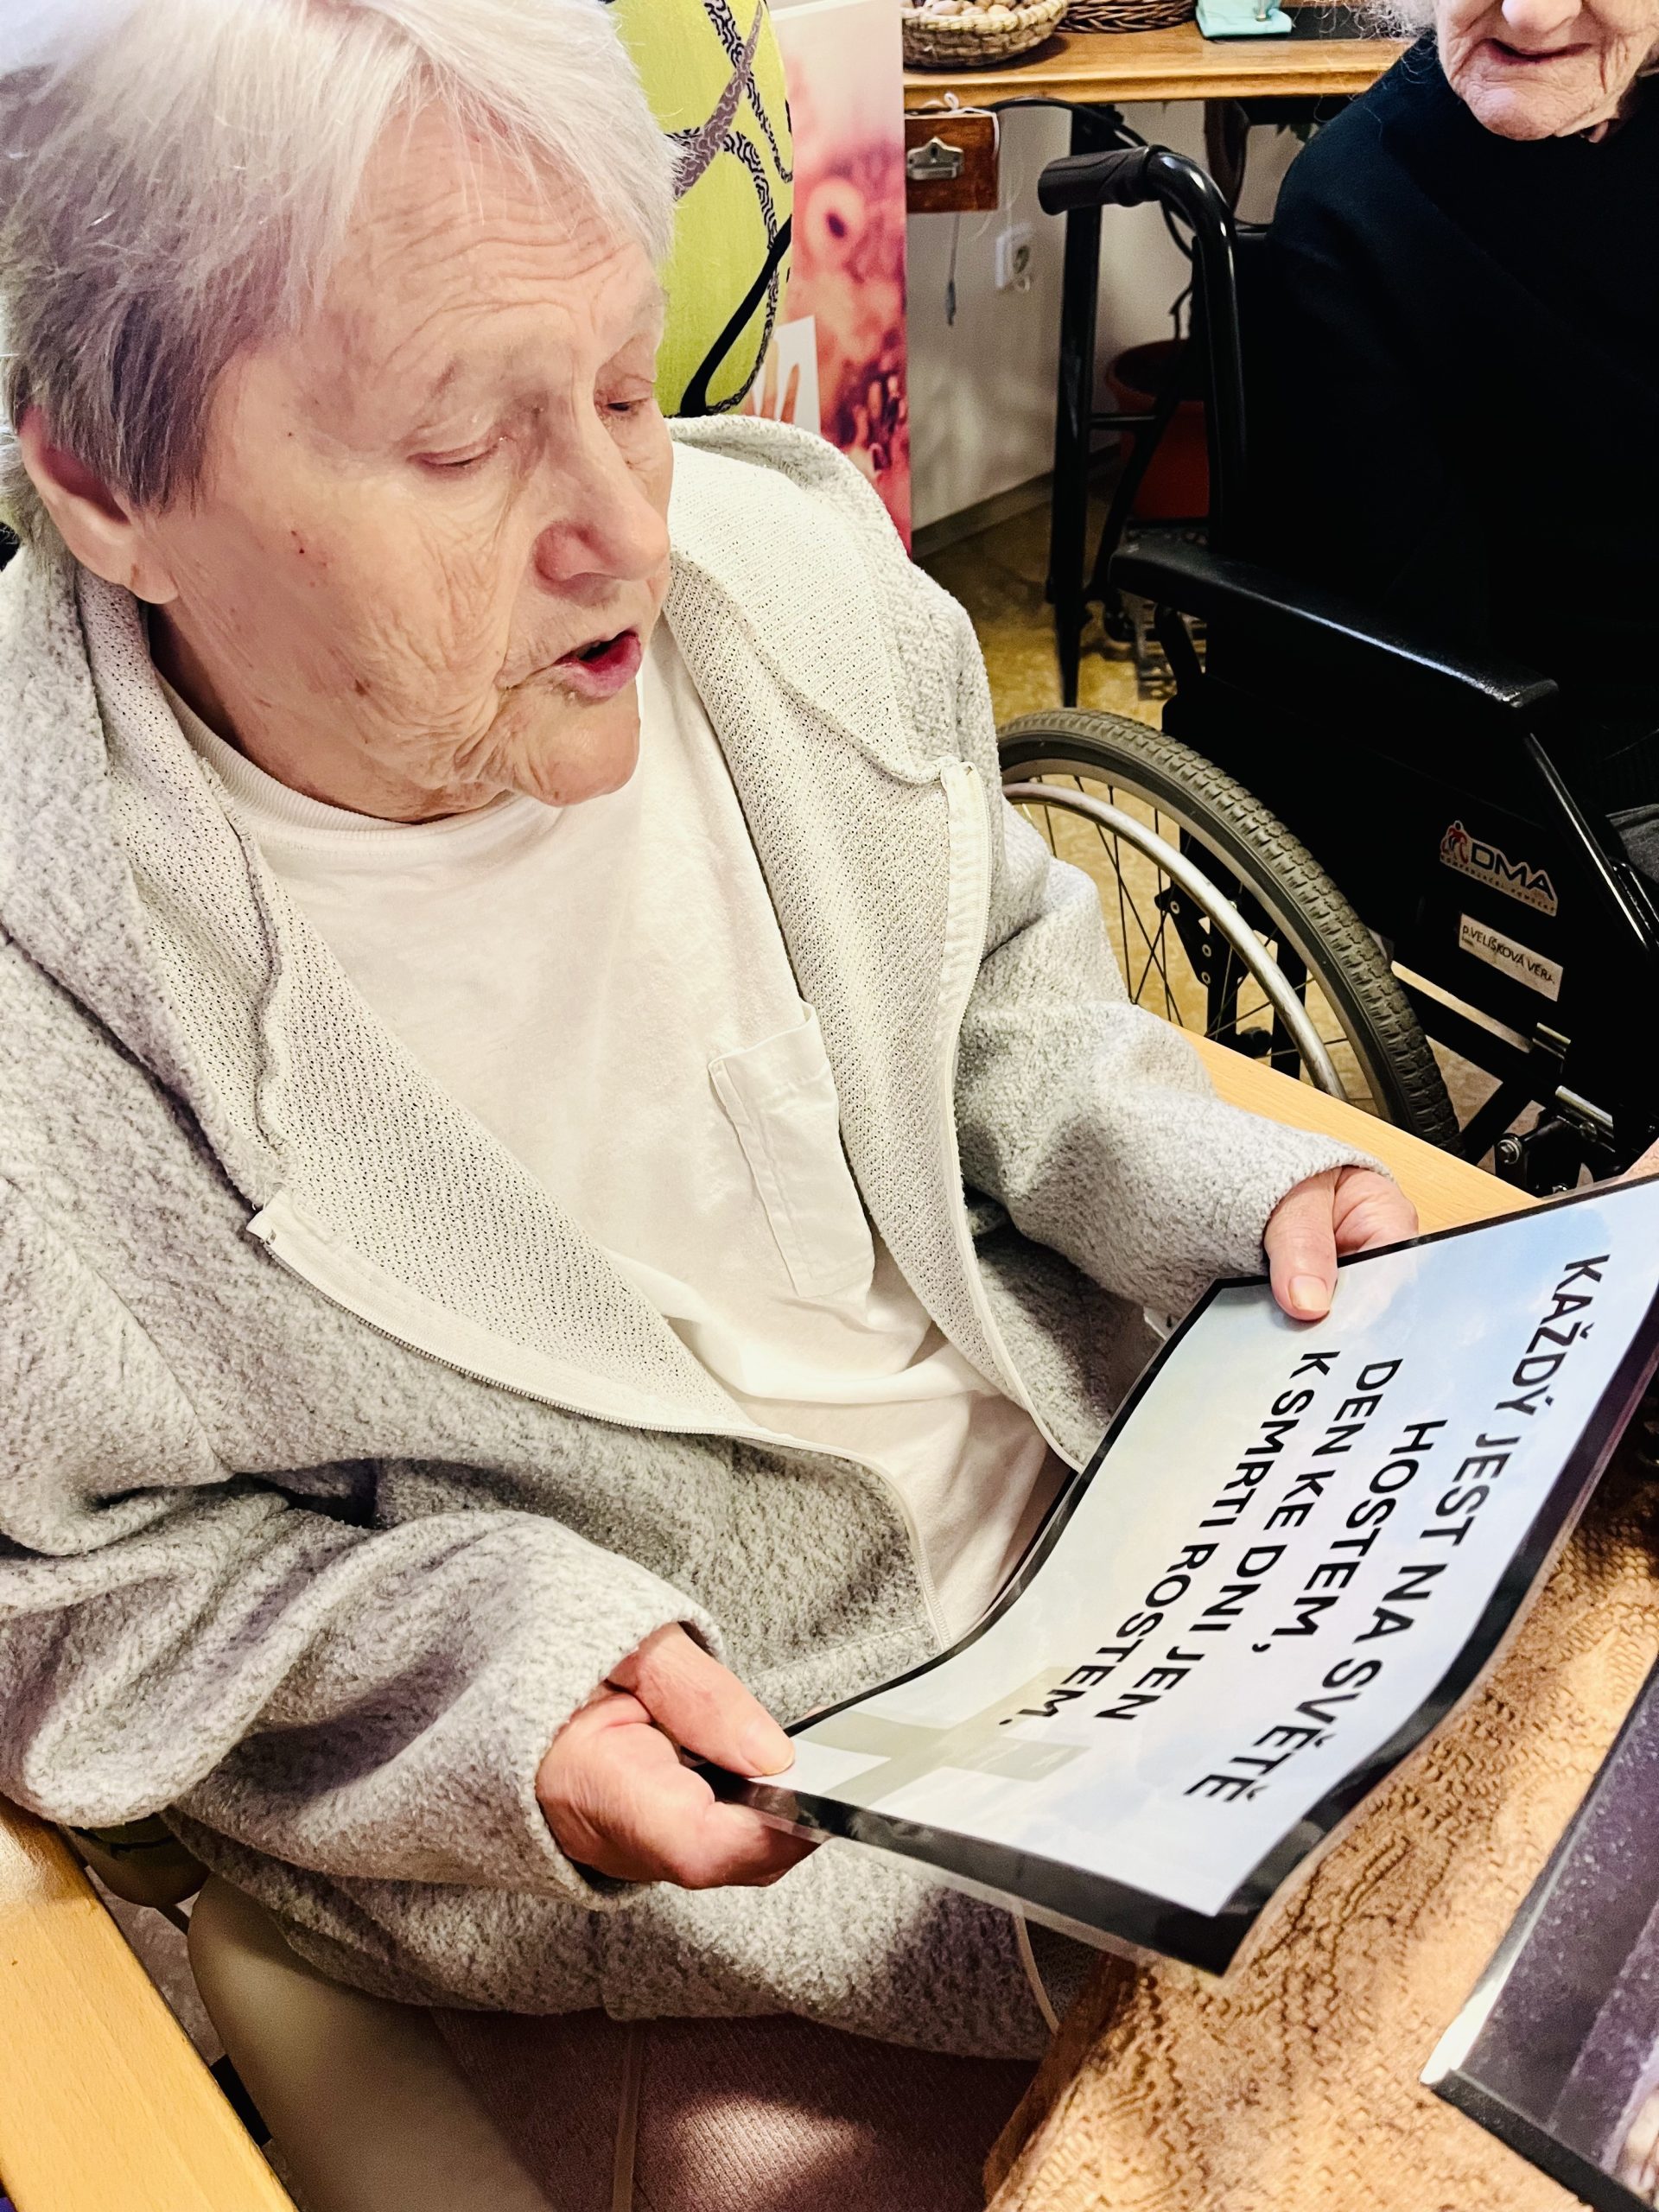 KAŽDÝ JEST NA SVĚTĚ
HOSTEM,
DEN KE DNI JEN
K SMRTI ROSTEM.
DMA
p.VELIŠKOVÁ VĚRA